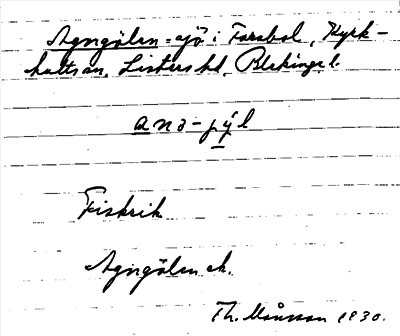 Agngölen - sjö i Farabol, Kyrk-
hults sn, Listers hd, Blekinge l.
anə-jýl
Fiskrik
Agngölen ek.
Th. Månsson 1930.